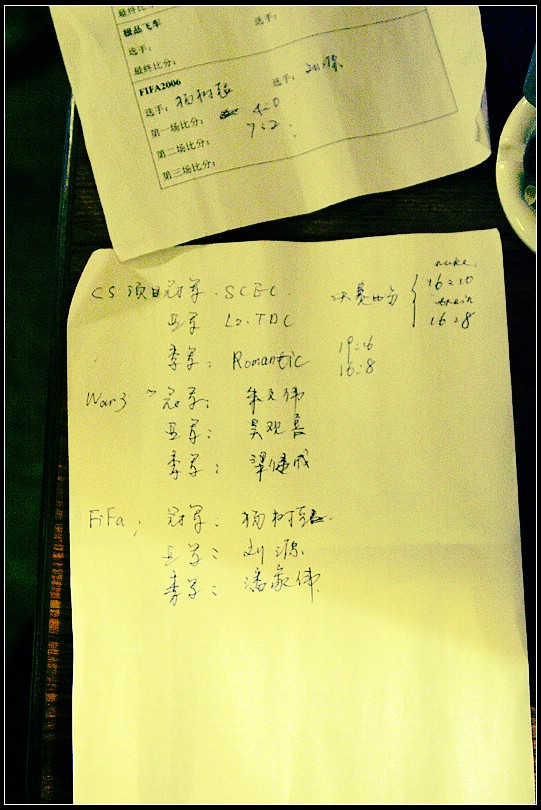 最终比分:
极品飞车
选手:
最终比分:
FIFA2006
选手: 杨树超 选手: 刘源
第一场比分: 4:0
第二场比分: 7:2
第三场比分:
CS 项目冠军. SCEC. 决赛比分 nuke. 16:10
亚军 LZ.TDC train 16:8
季军: Romantic 19:16
16:8
War3 冠军: 朱文伟
亚军: 吴观喜
季军: 梁健成
FiFa: 冠军: 杨树超.
亚军: 刘源
季军: 潘家伟